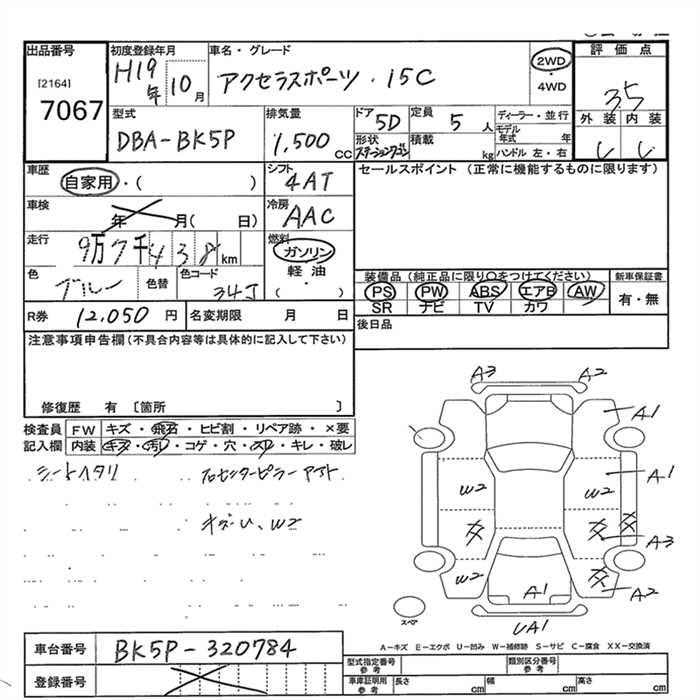 出品番号
[2164]
7067
初度登録年月
H19年 10月
車名・グレード
アクセラスポーツ・15C
2WD
・
4WD
評価点
3.5
外装 内装
型式
DBA-BK5P
排気量
1,500 CC
ドア
5D
定員
5 人
形状
ステーションワゴン
積載
kg
ディーラー・並行
モデル年式 年
ハンドル 左・右
車歴
自家用・( )
シフト
4AT
車検
年 月( 日)
冷房
AAC
走行
9万7千438km
燃料
ガソリン
軽油
・
( )
色
ブルー
色替
色コード
34J
R券 12,050円
名変期限 月 日
セールスポイント (正常に機能するものに限ります)
装備品(純正品に限り○をつけてください)
PS PW ABS エアB AW
SR ナビ TV カワ
新車保証書
有・無
後日品
注意事項申告欄(不具合内容等は具体的に記入して下さい)
修復歴 有 〔箇所 〕
検査員記入欄
FW キズ・飛石・ヒビ割・リペア跡・×要
内装 キズ・汚レ・コゲ・穴・スレ・キレ・破レ
シートヘタリ
W2
A3 A2
A1
W2 W2 A1
A3
W2 A2
A1
UA1
スペア
A-キズ E-エクボ U-凹み W-補修跡 S-サビ C-腐食 XX-交換済
車台番号 BK5P-320784
登録番号
型式指定番号 参考
類別区分番号 参考
車庫証明用 参考 長さ cm 幅 cm 高さ cm